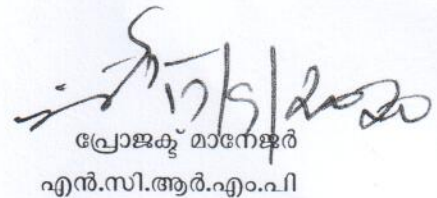 17/9/2020
പ്രോജക്ട് മാനേജർ
എൻ.സി.ആർ.എം.പി